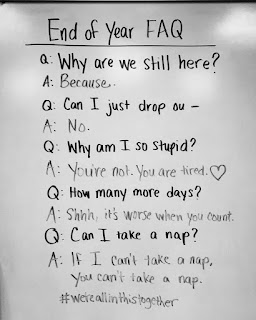 End of Year FAQ
Q: Why are we still here?
A: Because.
Q: Can I just drop ou –
A: No.
Q: Why am I so stupid?
A: You're not. You are tired.♡
Q: How many more days?
A: Shhh, it's worse when you count.
Q: Can I take a nap?
A: If I can't take a nap,
you can't take a nap.
#we'reallinthistogether